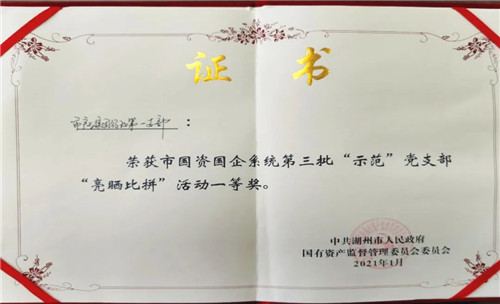 证 书
荣获市国资国企系统第三批“示范”党支部
“亮晒比拼”活动一等奖。
中共湖州市人民政府
国有资产监督管理委员会委员会
2021年1月